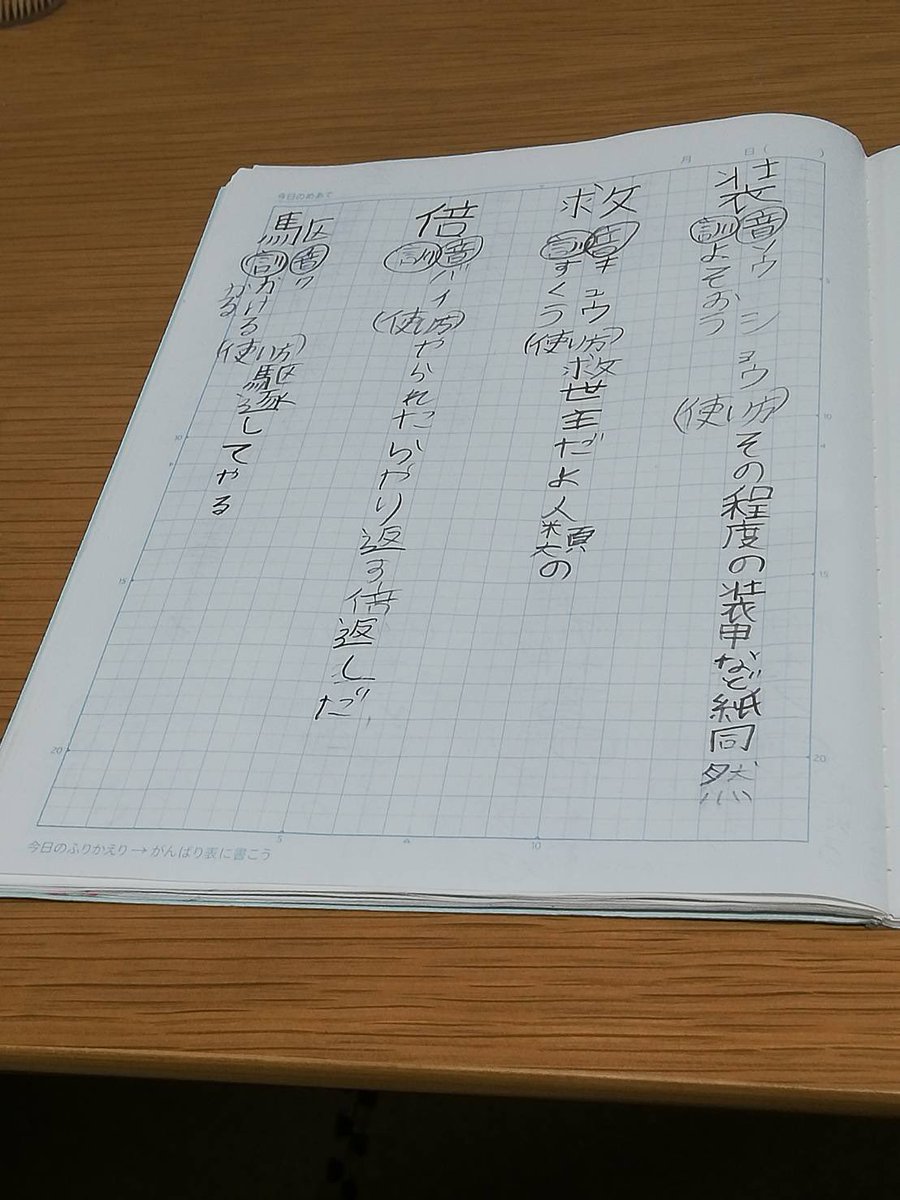 月　日（　）
今日のめあて
装
音ソウ　ショウ
訓よそおう
（使い方）その程度の装甲など紙同然
救
音キュウ
訓すくう
（使い方）救世主だよ人類の
倍
音バイ
訓
（使い方）やられたらやり返す倍返しだ
駆
音ク
訓かける
かる
（使い方）駆逐してやる
5
10
15
20
10
15
20
5
10
今日のふりかえり→がんばり表に書こう